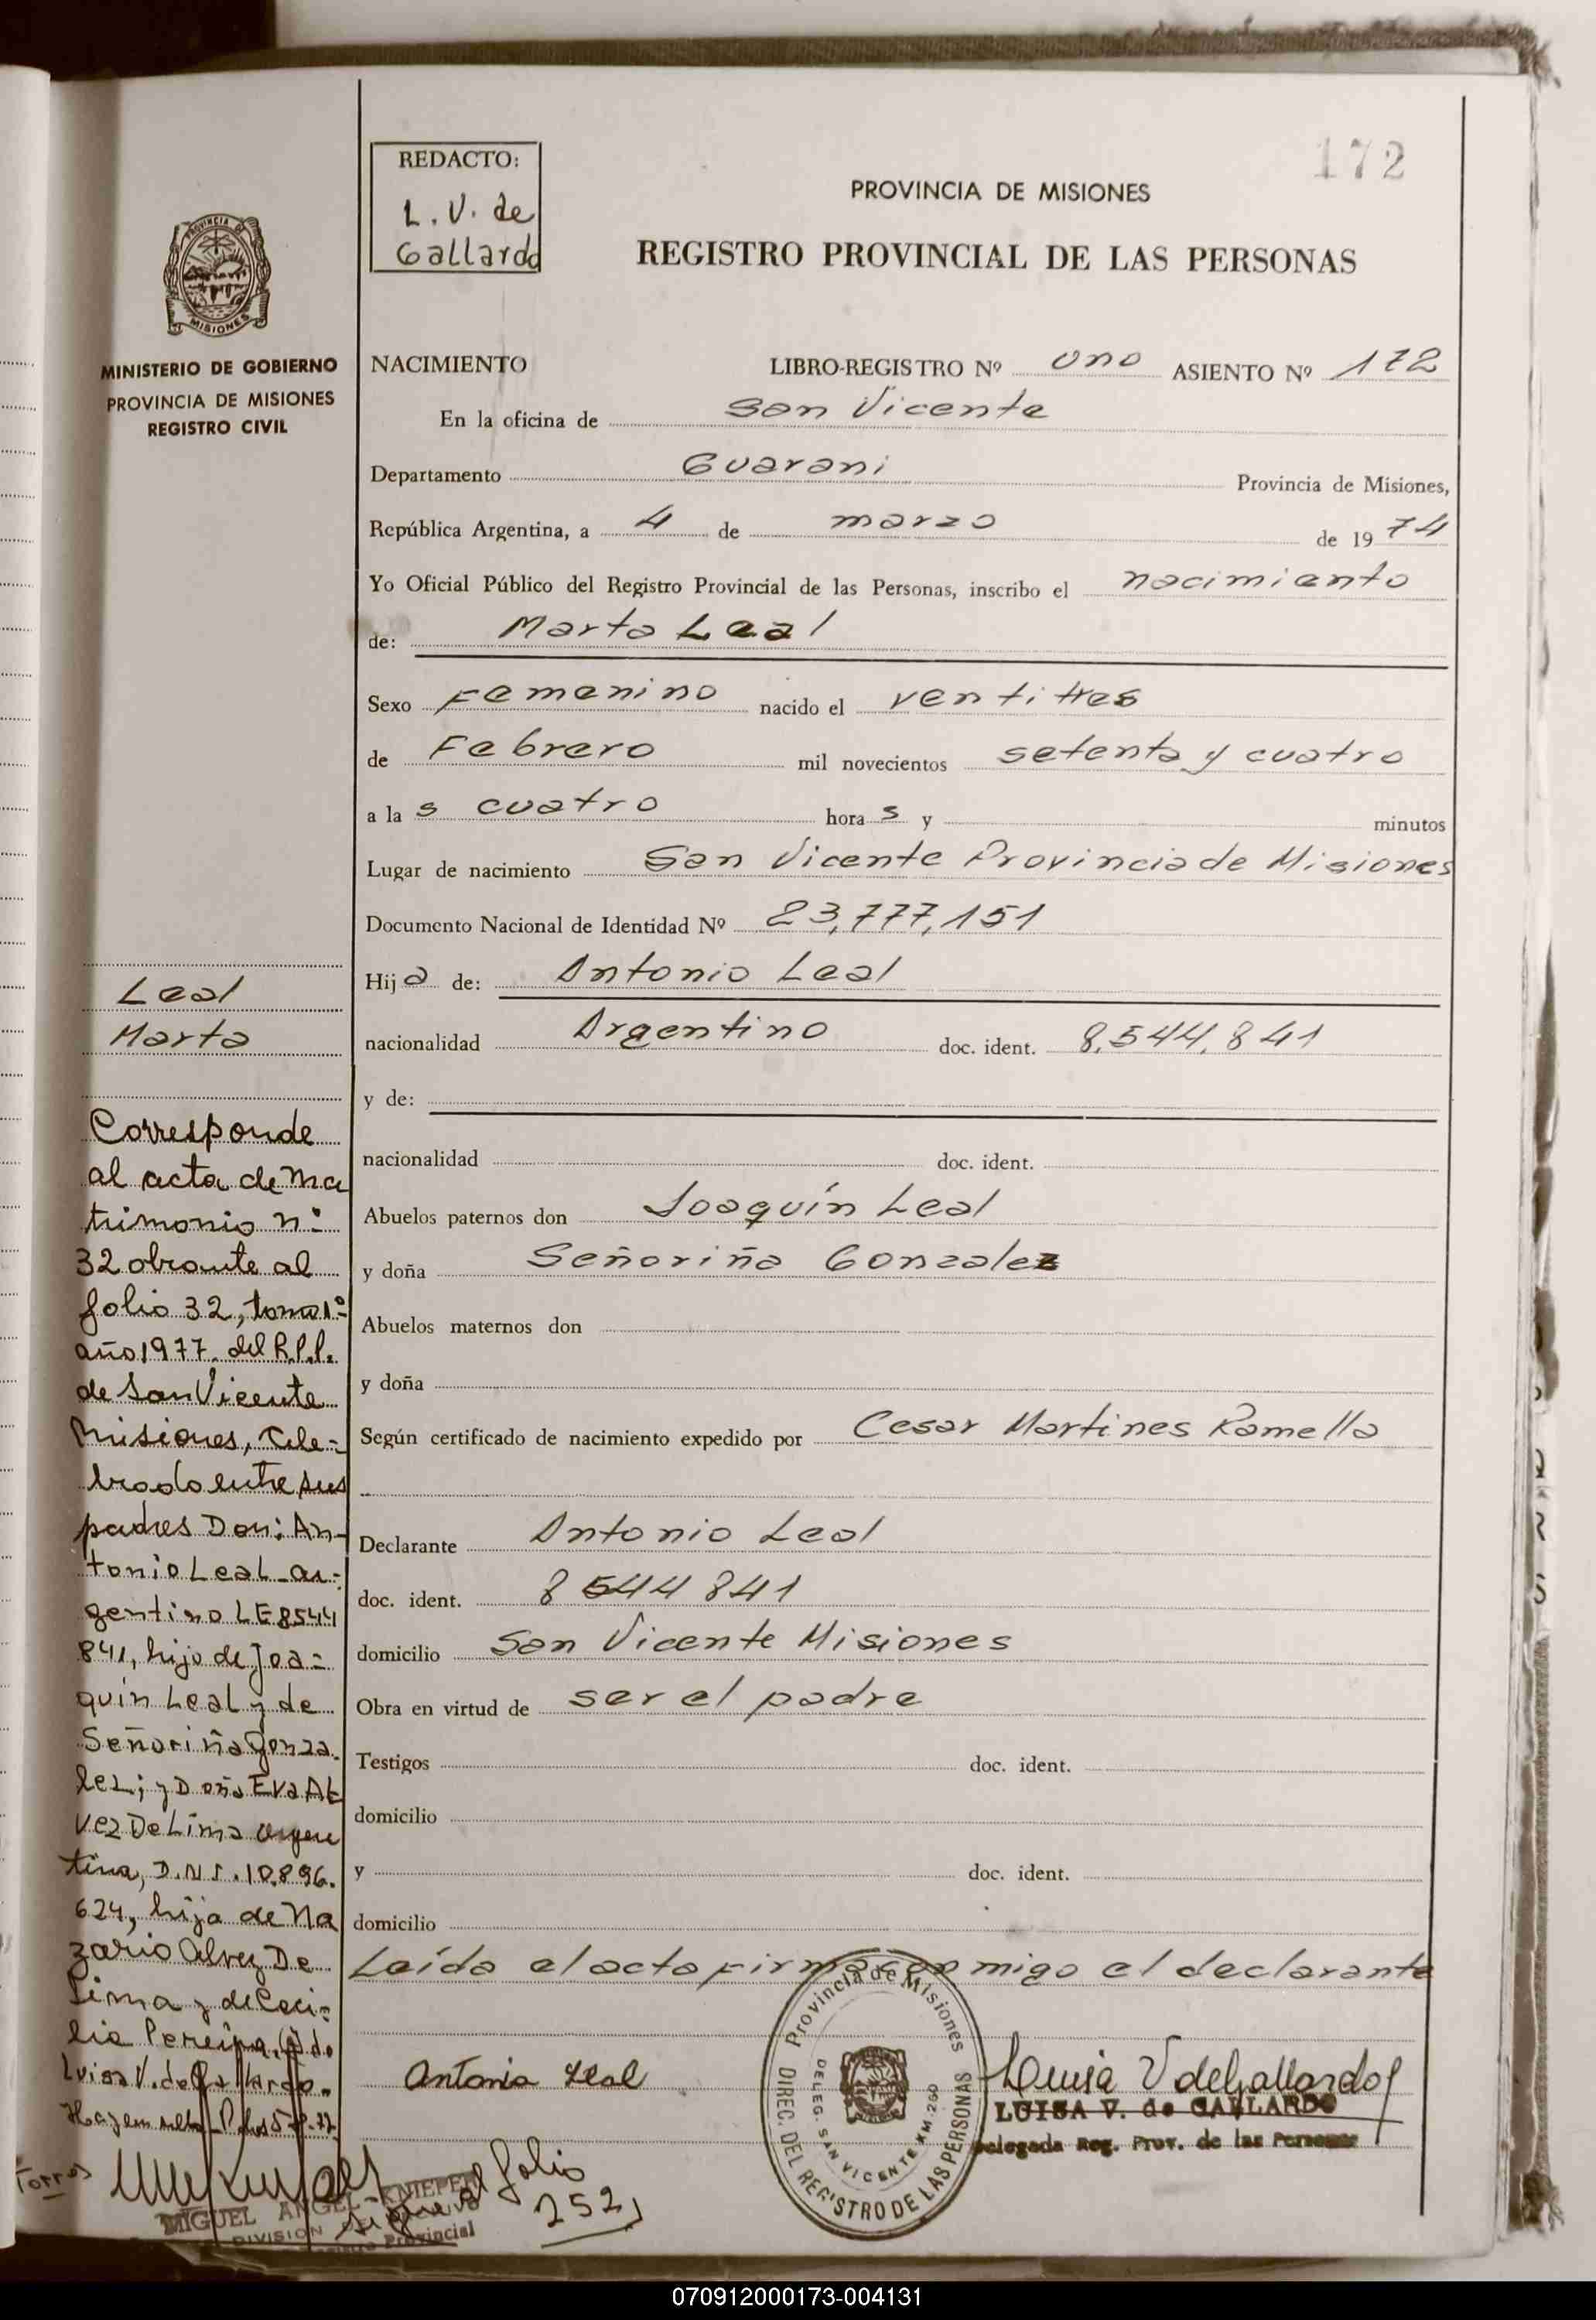 172
REDACTO:
L. V. de
Gallardo
PROVINCIA DE MISIONES
REGISTRO PROVINCIAL DE LAS PERSONAS
PROVINCIA DE
MISIONES
MINISTERIO DE GOBIERNO
PROVINCIA DE MISIONES
REGISTRO CIVIL
NACIMIENTO LIBRO-REGISTRO Nº uno ASIENTO Nº 172
En la oficina de San Vicente
Departamento Guarani Provincia de Misiones,
República Argentina, a 4 de marzo de 1974
Yo Oficial Público del Registro Provincial de las Personas, inscribo el nacimiento
de: Marta Leal
Sexo Femenino nacido el ventitres
de Febrero mil novecientos setenta y cuatro
a las cuatro horas y minutos
Lugar de nacimiento San Vicente Provincia de Misiones
Documento Nacional de Identidad Nº 23,777,151
Hija de: Antonio Leal
nacionalidad Argentino doc. ident. 8.544.841
y de:
nacionalidad doc. ident.
Abuelos paternos don Joaquín Leal
y doña Señoriña Gonzalez
Abuelos maternos don
y doña
Según certificado de nacimiento expedido por Cesar Martines Ramella
Declarante Antonio Leal
doc. ident. 8544841
domicilio San Vicente Misiones
Obra en virtud de ser el padre
Testigos doc. ident.
domicilio
y doc. ident.
domicilio
Leída el acta firma conmigo el declarante
Antonio Leal
Luisa V de Gallardo
LUISA V. de GALLARDO
Delegada Reg. Prov. de las Personas
Provincia de Misiones
DIREC. DEL REGISTRO DE LAS PERSONAS
DELEG. SAN VICENTE KM. 260
Leal
Marta
Corresponde
al acta de ma
trimonio n°
32 obrante al
folio 32, tomo 1°
año 1977. del R.P.P.
de San Vicente
Misiones, cele-
brado entre sus
padres Don: An-
tonio Leal - ar-
gentino LE 8544
841, hijo de Joa-
quín Leal y de
Señoriña Gonza.
lez; y Doña Eva Al
vez De Lima argen
tina, D.N.I. 10.896.
624, hija de Na
zario Alvez De
Lima y de Ceci-
lia Pereira. (f) do
Luisa V. de Gallardo.
Torres
sigue al folio
252
MIGUEL ANGEL KNIEPER
DIVISION
Provincial
070912000173-004131